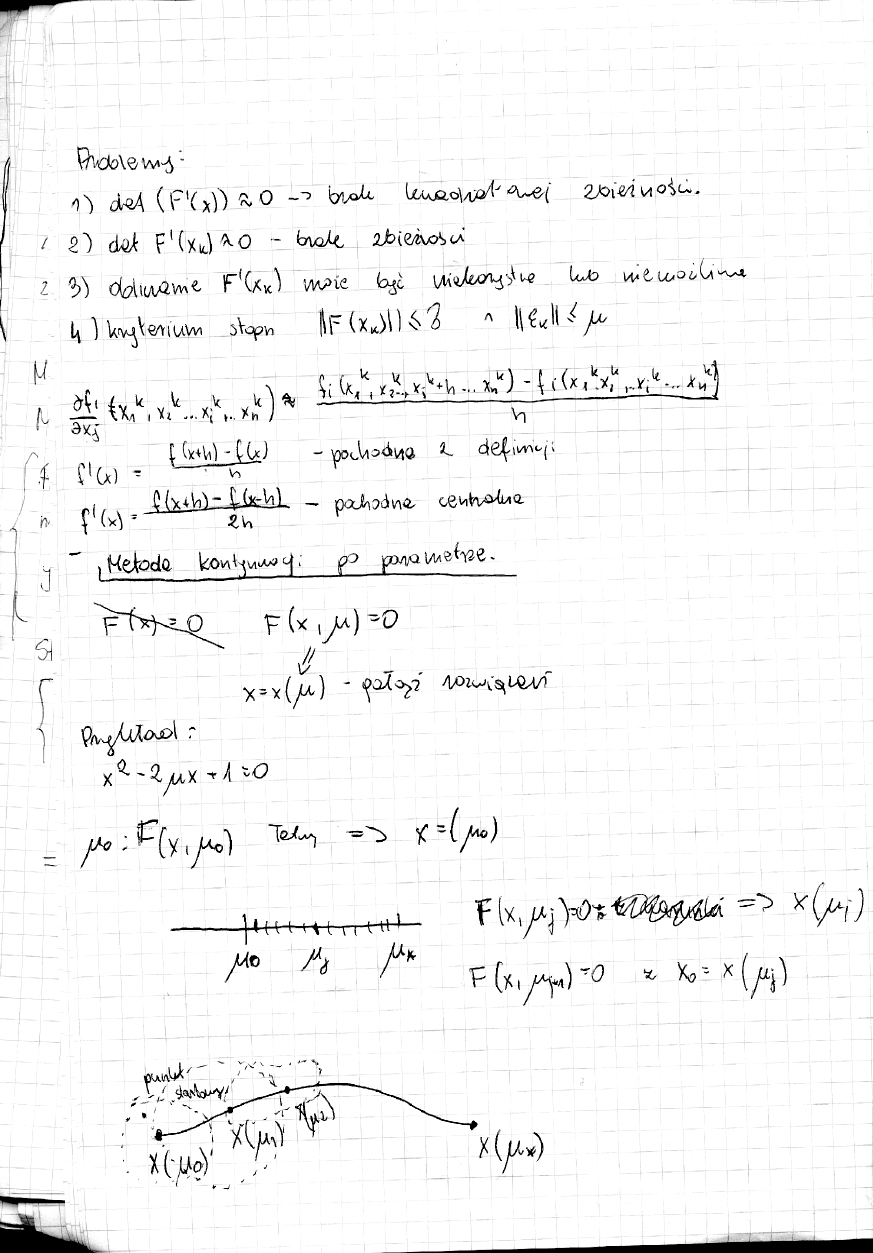 Problemy:
1) det (F'(x)) ≈ 0 -> brak kwadratowej zbieżności.
2) det F'(x_k) ≈ 0 - brak zbieżości
3) obliczanie F'(x_k) może być niekorzystne lub niemożliwe
4) kryterium stopu ||F(x_k)|| ≤ ∧ ||ε_k|| ≤ μ
∂f_i/∂x_j (x_1^k, x_2^k ... x_i^k, ... x_n^k) ≈ (f_i(x_1^k, x_2^k..., x_j^k+h ... x_n^k) - f_i(x_1^k x_2^k, ... x_i^k ... x_n^k))/h
f'(x) = (f(x+h) - f(x))/h - pochodna z definicji
f'(x) = (f(x+h) - f(x-h))/2h - pochodna centralna
Metoda kontynuacji po parametrze.
F(x) = 0 F(x, μ) = 0
x = x(μ) - gałąź rozwiązań
Przykład:
x² - 2μx + 1 = 0
μ_0 : F(x, μ_0) => x = (μ_0)
F(x, μ_j) = 0 => x(μ_j)
μ_0 μ_j μ_*
F(x, μ_j+1) = 0 z x_0 = x(μ_j)
punkt
startowy
x(μ_0) x(μ_1) x(μ_2)
x(μ_*)